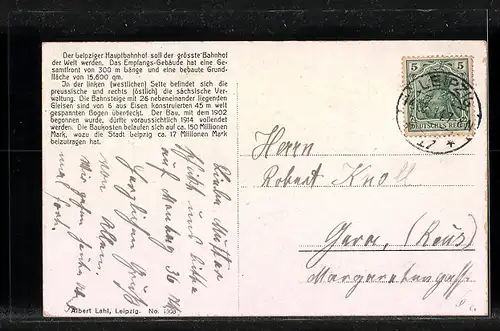 Der Leipziger Hauptbahnhof soll der grösste Bahnhof
der Welt werden. Das Empfangs-Gebäude hat eine Ge-
samtfront von 300 m Länge und eine bebaute Grund-
fläche von 15,600 qm.
In der linken (westlichen) Seite befindet sich die
preussische und rechts (östlich) die sächsische Ver-
waltung. Die Bahnsteige mit 26 nebeneinander liegenden
Gleisen sind von 6 aus Eisen konstruierten 45 m weit
gespannten Bogen überdeckt. Der Bau, mit dem 1902
begonnen wurde, dürfte voraussichtlich 1914 vollendet
werden. Die Baukosten belaufen sich auf ca. 150 Millionen
Mark, wozu die Stadt Leipzig ca. 17 Millionen Mark
beizutragen hat.
5 5
DEUTSCHES REICH
LEIPZIG
Herrn
Robert Knoll
Gera, (Reus)
Margaretengasse
Mutter
bitte
auf 36
Herzlichen Gruß
von Allen.
Wir gehen
mal fort.
Albert Lahl, Leipzig. No.